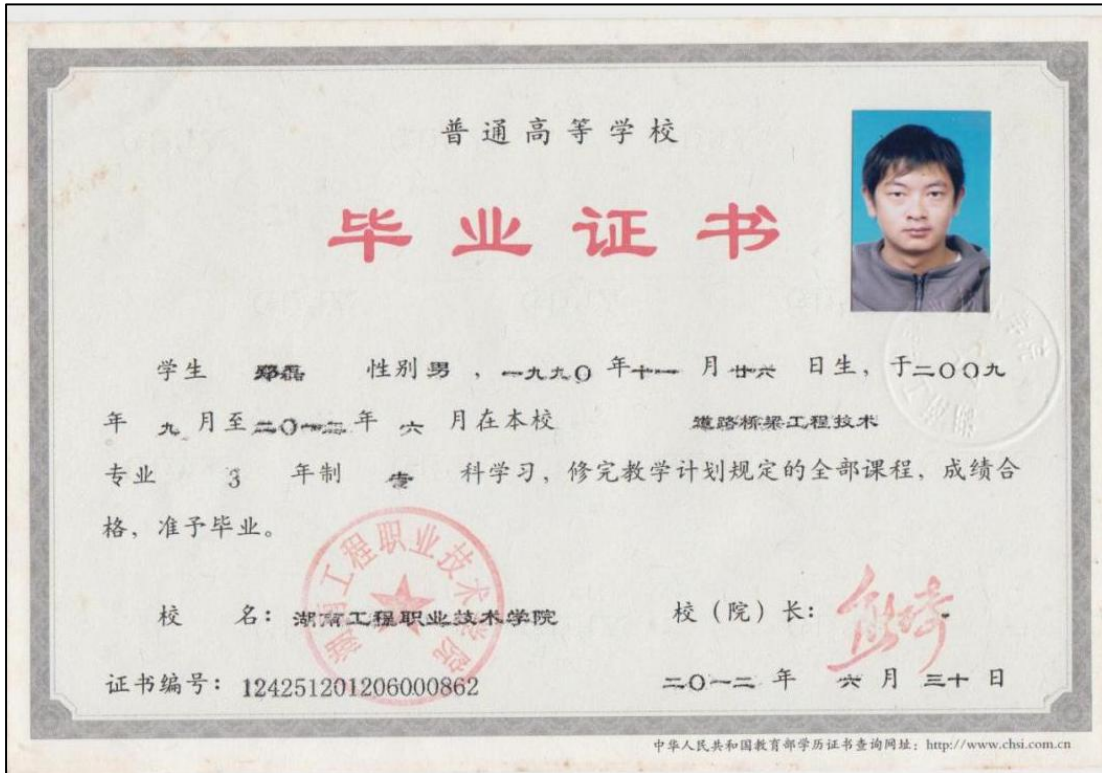 普通高等学校
毕业证书
学生 郑磊 性别 男 , 一九九0 年 十一 月 廿六 日生, 于二00九
年 九 月至 二0一二 年 六 月在本校 道路桥梁工程技术
专业 3 年制 专 科学习, 修完教学计划规定的全部课程, 成绩合
格, 准予毕业。
校 名: 湖南工程职业技术学院 校(院)长:
湖南工程职业技术学院
证书编号: 124251201206000862 二0一二 年 六 月 三十 日
中华人民共和国教育部学历证书查询网址: http://www.chsi.com.cn